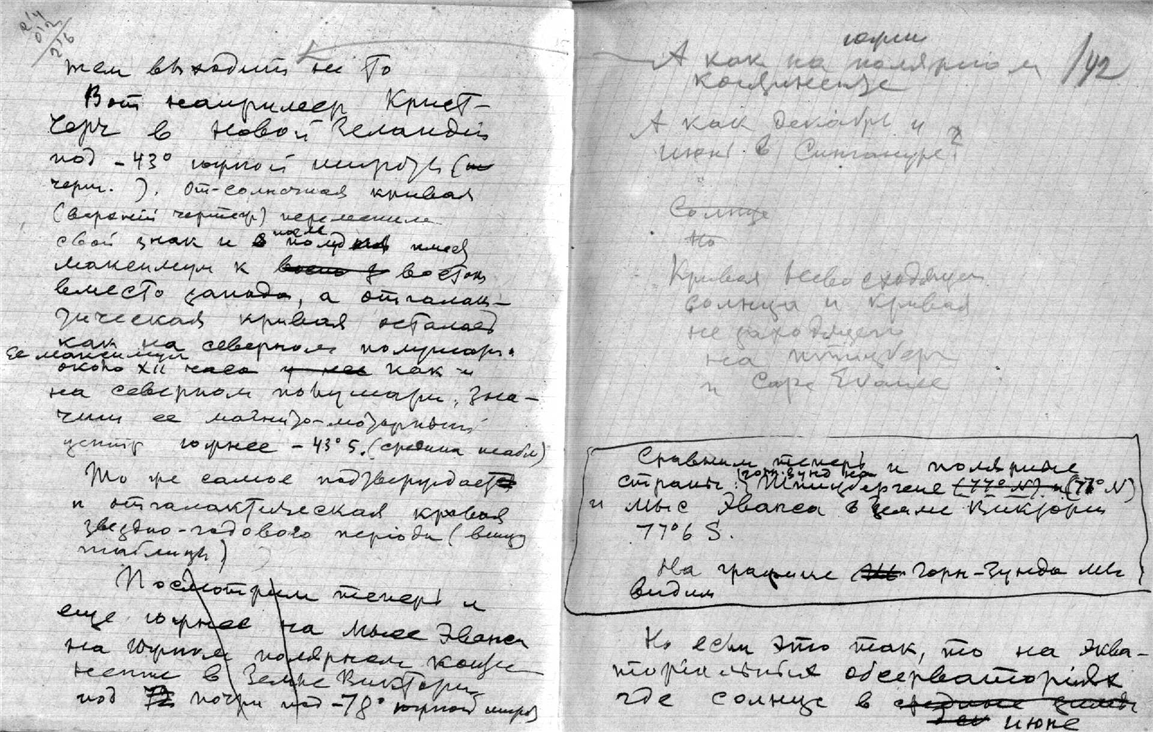 24
02
26
тем выходит не то
Вот например Крист-
черч в Новой Зеландіи
под -43° южной широты (
черт.). От-солнечная кривая
(верхній чертеж) переменила
свой знак и имея
максимум к востоку
вместо запада, а отгалак-
тическая кривая осталась
как на северном полушаріи
Ее максимум
около XII часа как и
на северном полушаріи, зна-
чит ее магнито-моторный
центр южнее -43° S. (средина неабл)
То же самое подтверждает
и отгалактическая кривая
звездно-годового періода (внизу
таблицы)
Посмотрим теперь и
еще южнее на мысе Эванса
на Южном полярном конти-
ненте в Земле Викторіи
под почти под -78° южной широты
/42
А как на южном полярном
континенте
А как декабрь и
июнь в Сингапуре?
Солнце
Но
Кривая невосходящего
солнца и кривая
незаходящего
на Шпицберг
и Cape Evance
Сравним теперь и полярные
страны: Горн-Зунд на Шпицбергене (77° N) и (77° N)
и мыс Эванса в Земле Викторіи
77°6 S.
На графике Горн-Зунда мы
видим
Но если это так, то на эква-
торіальных обсерваторіях
где солнце в
июне